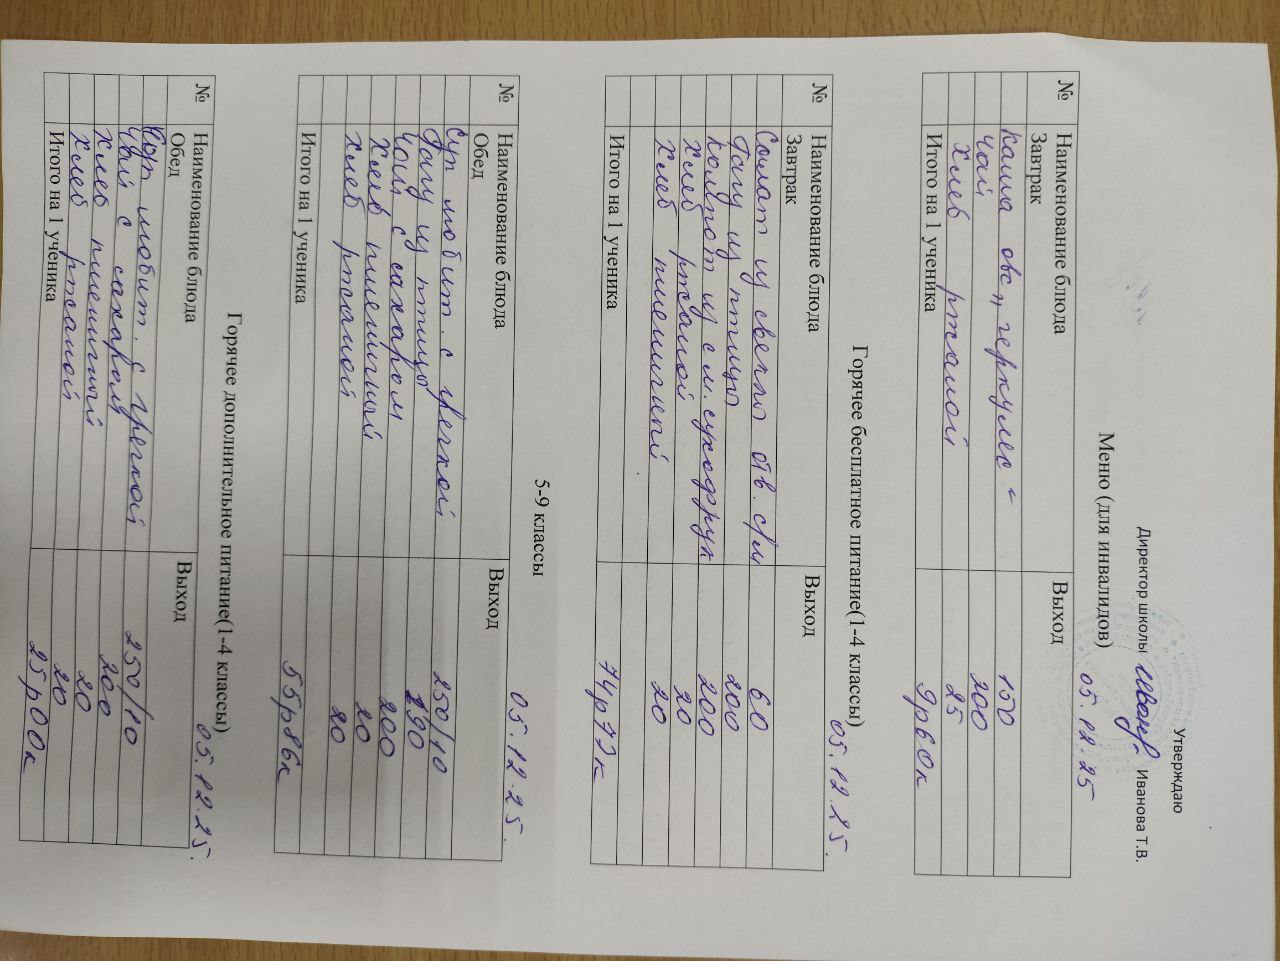 Утверждаю
Директор школы Иванова Т.В.
Меню (для инвалидов) 05.12.25
№ Наименование блюда Выход
Завтрак
каша овс,, геркулес" 150
чай 200
хлеб ржаной 25
Итого на 1 ученика 9р60к
Горячее бесплатное питание(1-4 классы) 05.12.25.
№ Наименование блюда Выход
Завтрак
Салат из свеклы отв. с/м 60
Рагу из птицы 200
Компот из см. сухофрук 200
хлеб ржаной 20
хлеб пшеничный 20
Итого на 1 ученика 74р79к
5-9 классы 05.12.25.
№ Наименование блюда Выход
Обед
Суп любит. с гречкой 250/10
Рагу из птицы
чай с сахаром 200
хлеб пшеничный 20
хлеб ржаной 20
Итого на 1 ученика 55р86к
Горячее дополнительное питание(1-4 классы) 05.12.25.
№ Наименование блюда Выход
Обед
Суп любит. с гречкой 250/10
чай с сахаром 200
хлеб пшеничный 20
хлеб ржаной 20
Итого на 1 ученика 25р00к